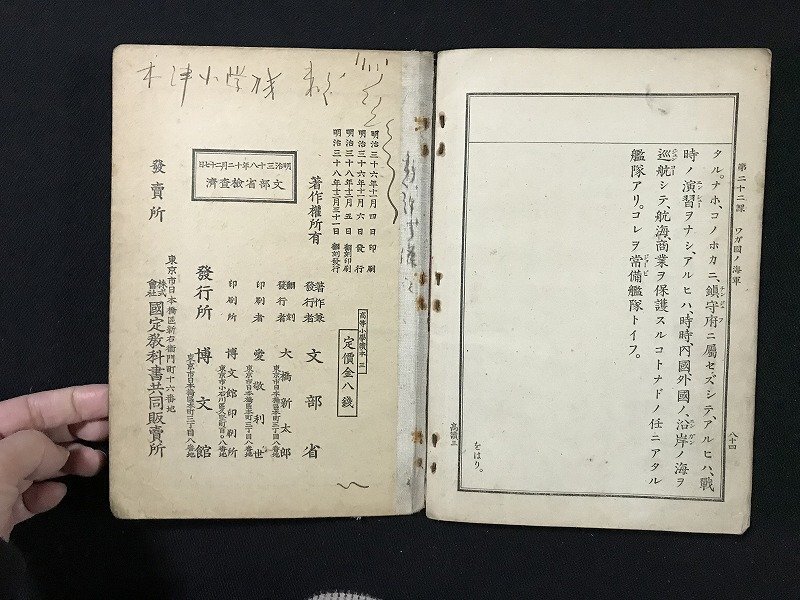 第二十二課 ワガ國ノ海軍
八十四
タル。ナホ、コノホカニ、鎭守府ニ屬セズシテ、アルヒハ、戰
時ノ演習ヲナシ、アルヒハ、時時、內國外國ノ、沿岸ノ海ヲ
巡航シテ、航海、商業ヲ保護スルコトナドノ任ニアタル
艦隊アリ。コレヲ常備艦隊トイフ。
をはり。
高讀三
木津小学校
明治三十六年十一月四日印刷
明治三十六年十一月六日發行
明治三十八年十二月五日翻刻印刷
明治三十八年十二月三十一日翻刻發行
著作權所有
明治三十八年十二月二十七日
文部省檢查濟
高等小學讀本 三
定價金八錢
著作兼發行者 文部省
翻刻發行者 大橋新太郎
東京市日本橋區本町三丁目八番地
印刷者 愛敬利世
印刷所 博文館印刷所
發行所 博文館
東京市日本橋區本町三丁目八番地
發賣所
東京市日本橋區新右衞門町十六番地
株式會社 國定敎科書共同販賣所